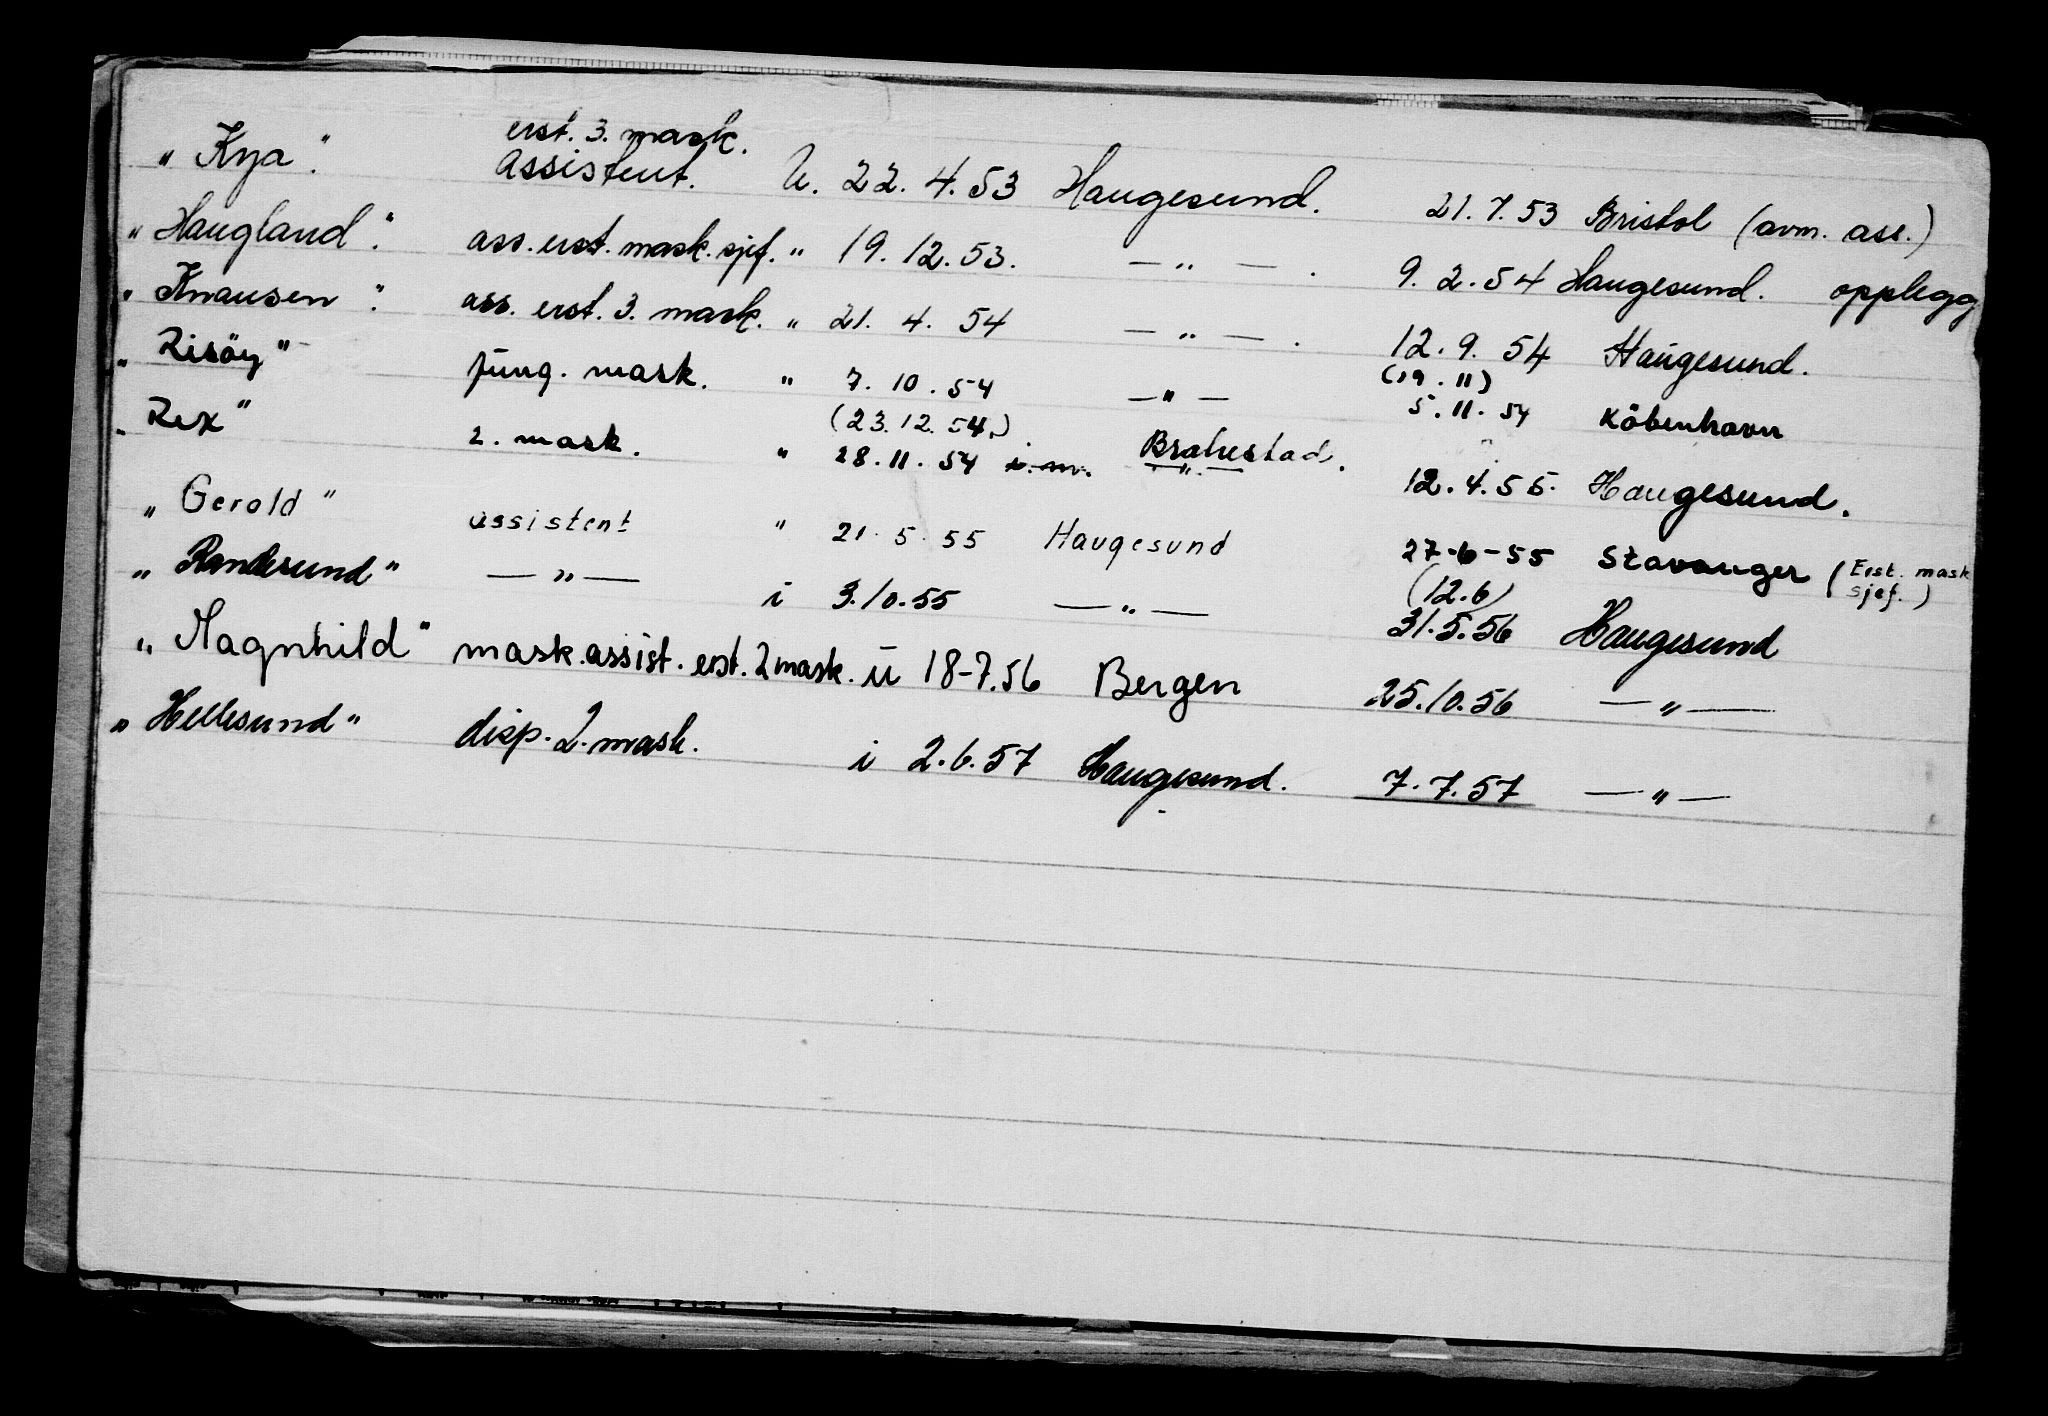 erst. 3. mask.
„ Kya ". Assistent. U. 22. 4. 53 Haugesund. 21. 7. 53 Bristol (avm. ass.)
„ Haugland ". ass. erst. mask. sjef. " 19. 12. 53. — " — . 9. 2. 54 Haugesund. opplegg
„ Knausen ". ass. erst. 3. mask. " 21. 4. 54 — " — . 12. 9. 54 Haugesund.
(19. 11)
„ Risöy " jung. mask. " 7. 10. 54 — " — 5. 11. 54 Köbenhavn
(23. 12. 54.) Brahestad.
„ Rex " 2. mask. " 28. 11. 54 — " — 12. 4. 55. Haugesund.
„ Gerold " assistent " 21. 5. 55 Haugesund 27-6-55 Stavanger (Erst. mask sjef.)
(12.6)
„ Randesund " — " — i 3.10.55 — " — 31.5.56 Haugesund
„ Magnhild " mask. assist. erst. 2 mask. u 18-7.56 Bergen 25.10.56 — " —
„ Hellesund " disp. 2. mask. i 2.6.57 Haugesund. 7.7.57 — " —